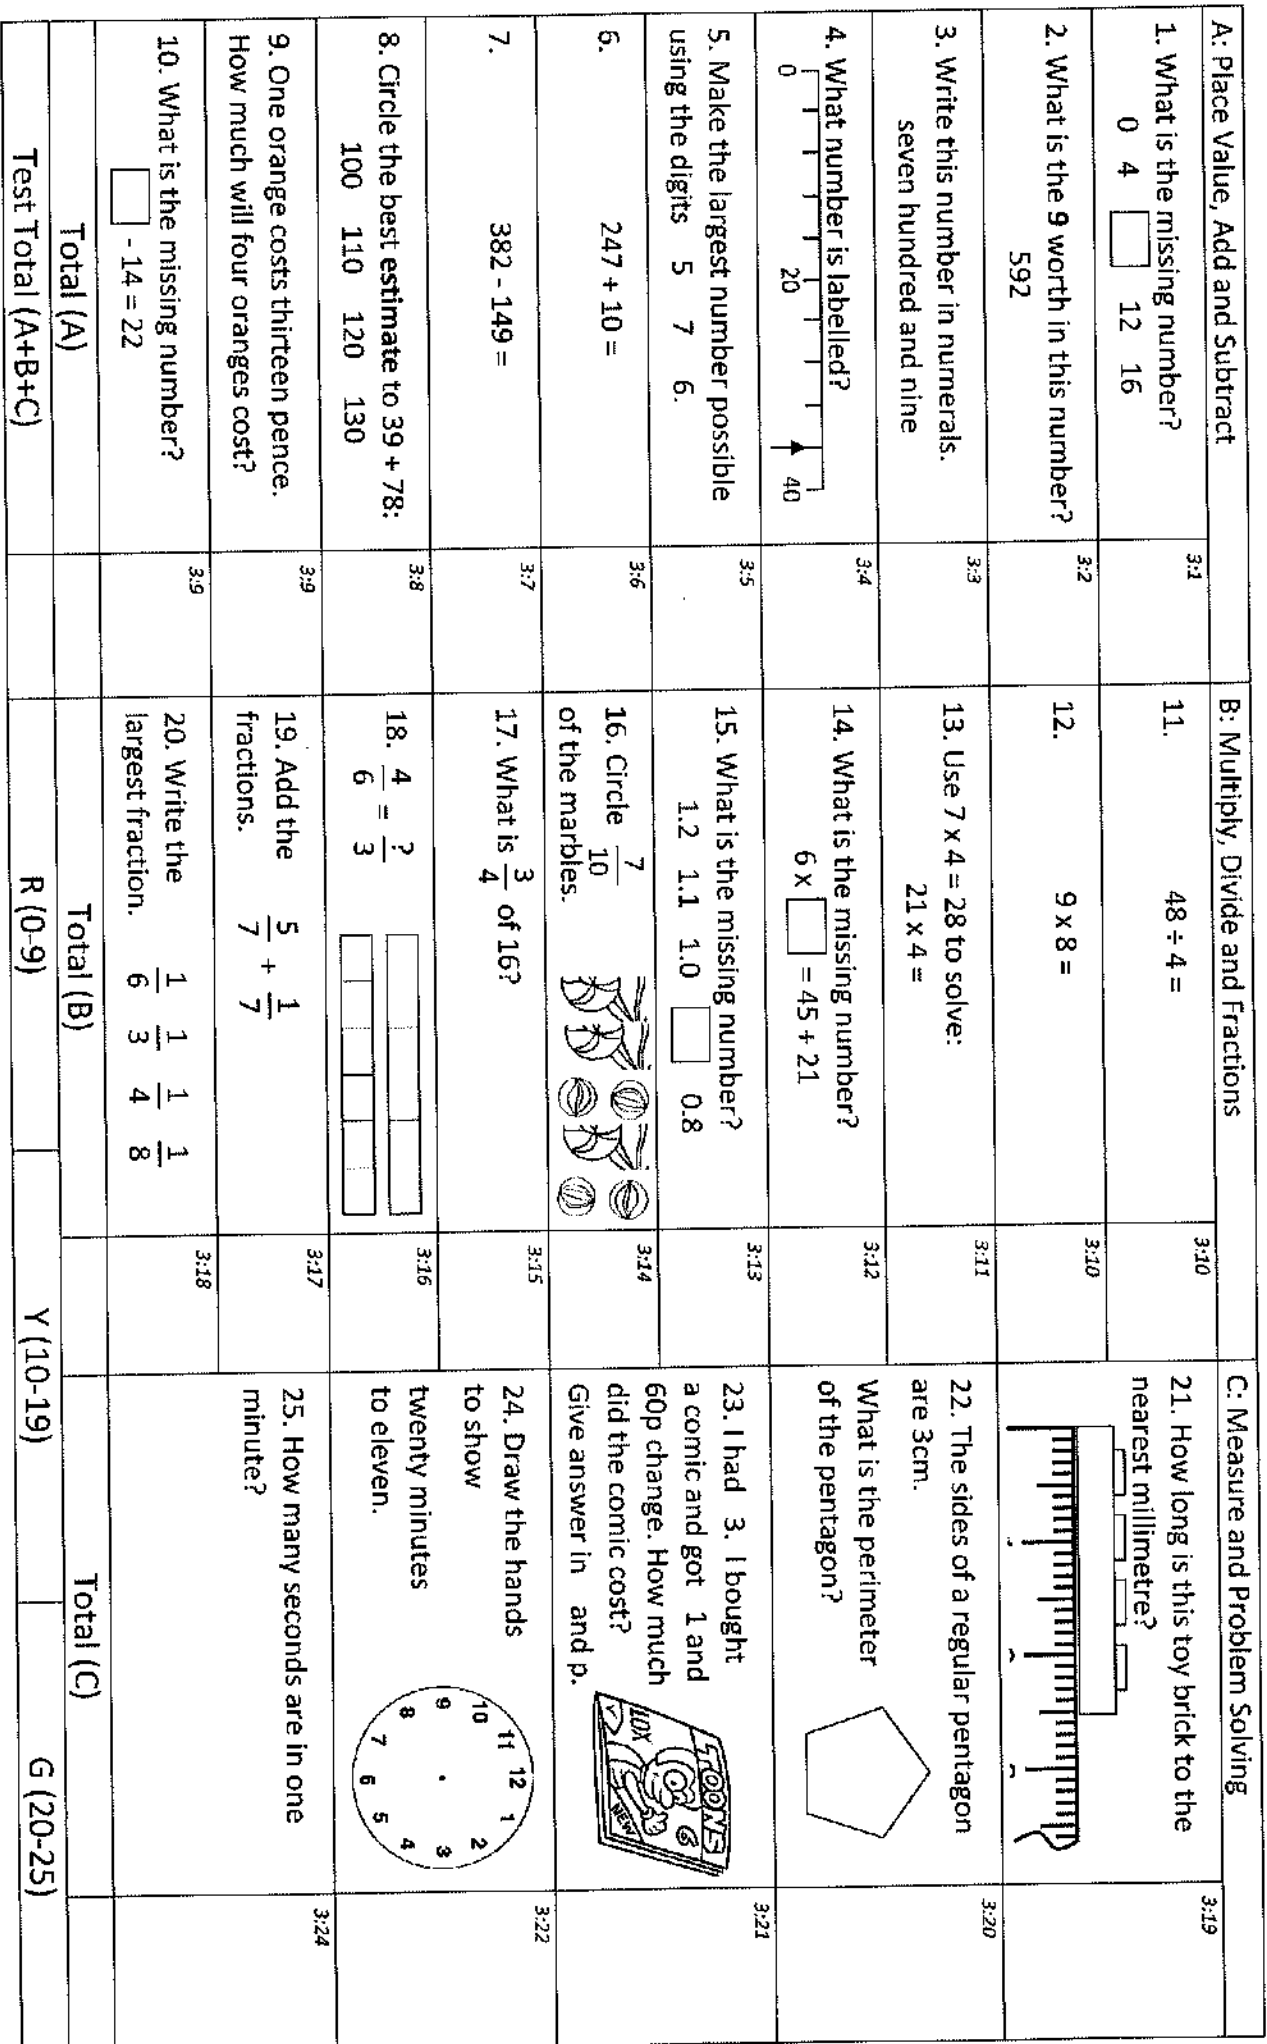 A: Place Value, Add and Subtract
1. What is the missing number?
0 4 12 16
3:1
2. What is the 9 worth in this number?
592
3:2
3. Write this number in numerals.
seven hundred and nine
3:3
4. What number is labelled?
0 20 40
3:4
5. Make the largest number possible
using the digits 5 7 6.
3:5
6. 247 + 10 =
3:6
7. 382 - 149 =
3:7
8. Circle the best estimate to 39 + 78:
100 110 120 130
3:8
9. One orange costs thirteen pence.
How much will four oranges cost?
3:9
10. What is the missing number?
- 14 = 22
3:9
Total (A)
B: Multiply, Divide and Fractions
11. 48 ÷ 4 =
3:10
12. 9 x 8 =
3:10
13. Use 7 x 4 = 28 to solve:
21 x 4 =
3:11
14. What is the missing number?
6 x = 45 + 21
3:12
15. What is the missing number?
1.2 1.1 1.0 0.8
3:13
16. Circle 7/10
of the marbles.
3:14
17. What is 3/4 of 16?
3:15
18. 4/6 = ?/3
3:16
19. Add the
fractions. 5/7 + 1/7
3:17
20. Write the
largest fraction. 1/6 1/3 1/4 1/8
3:18
Total (B)
C: Measure and Problem Solving
21. How long is this toy brick to the
nearest millimetre?
3:19
22. The sides of a regular pentagon
are 3cm.
What is the perimeter
of the pentagon?
3:20
23. I had 3. I bought
a comic and got 1 and
60p change. How much
did the comic cost?
Give answer in and p.
TOONS
6
LOX
NEW
3:21
24. Draw the hands
to show
twenty minutes
to eleven.
12 1 2 3 4 5 6 7 8 9 10 11
3:22
25. How many seconds are in one
minute?
3:24
Total (C)
Test Total (A+B+C)
R (0-9)
Y (10-19)
G (20-25)